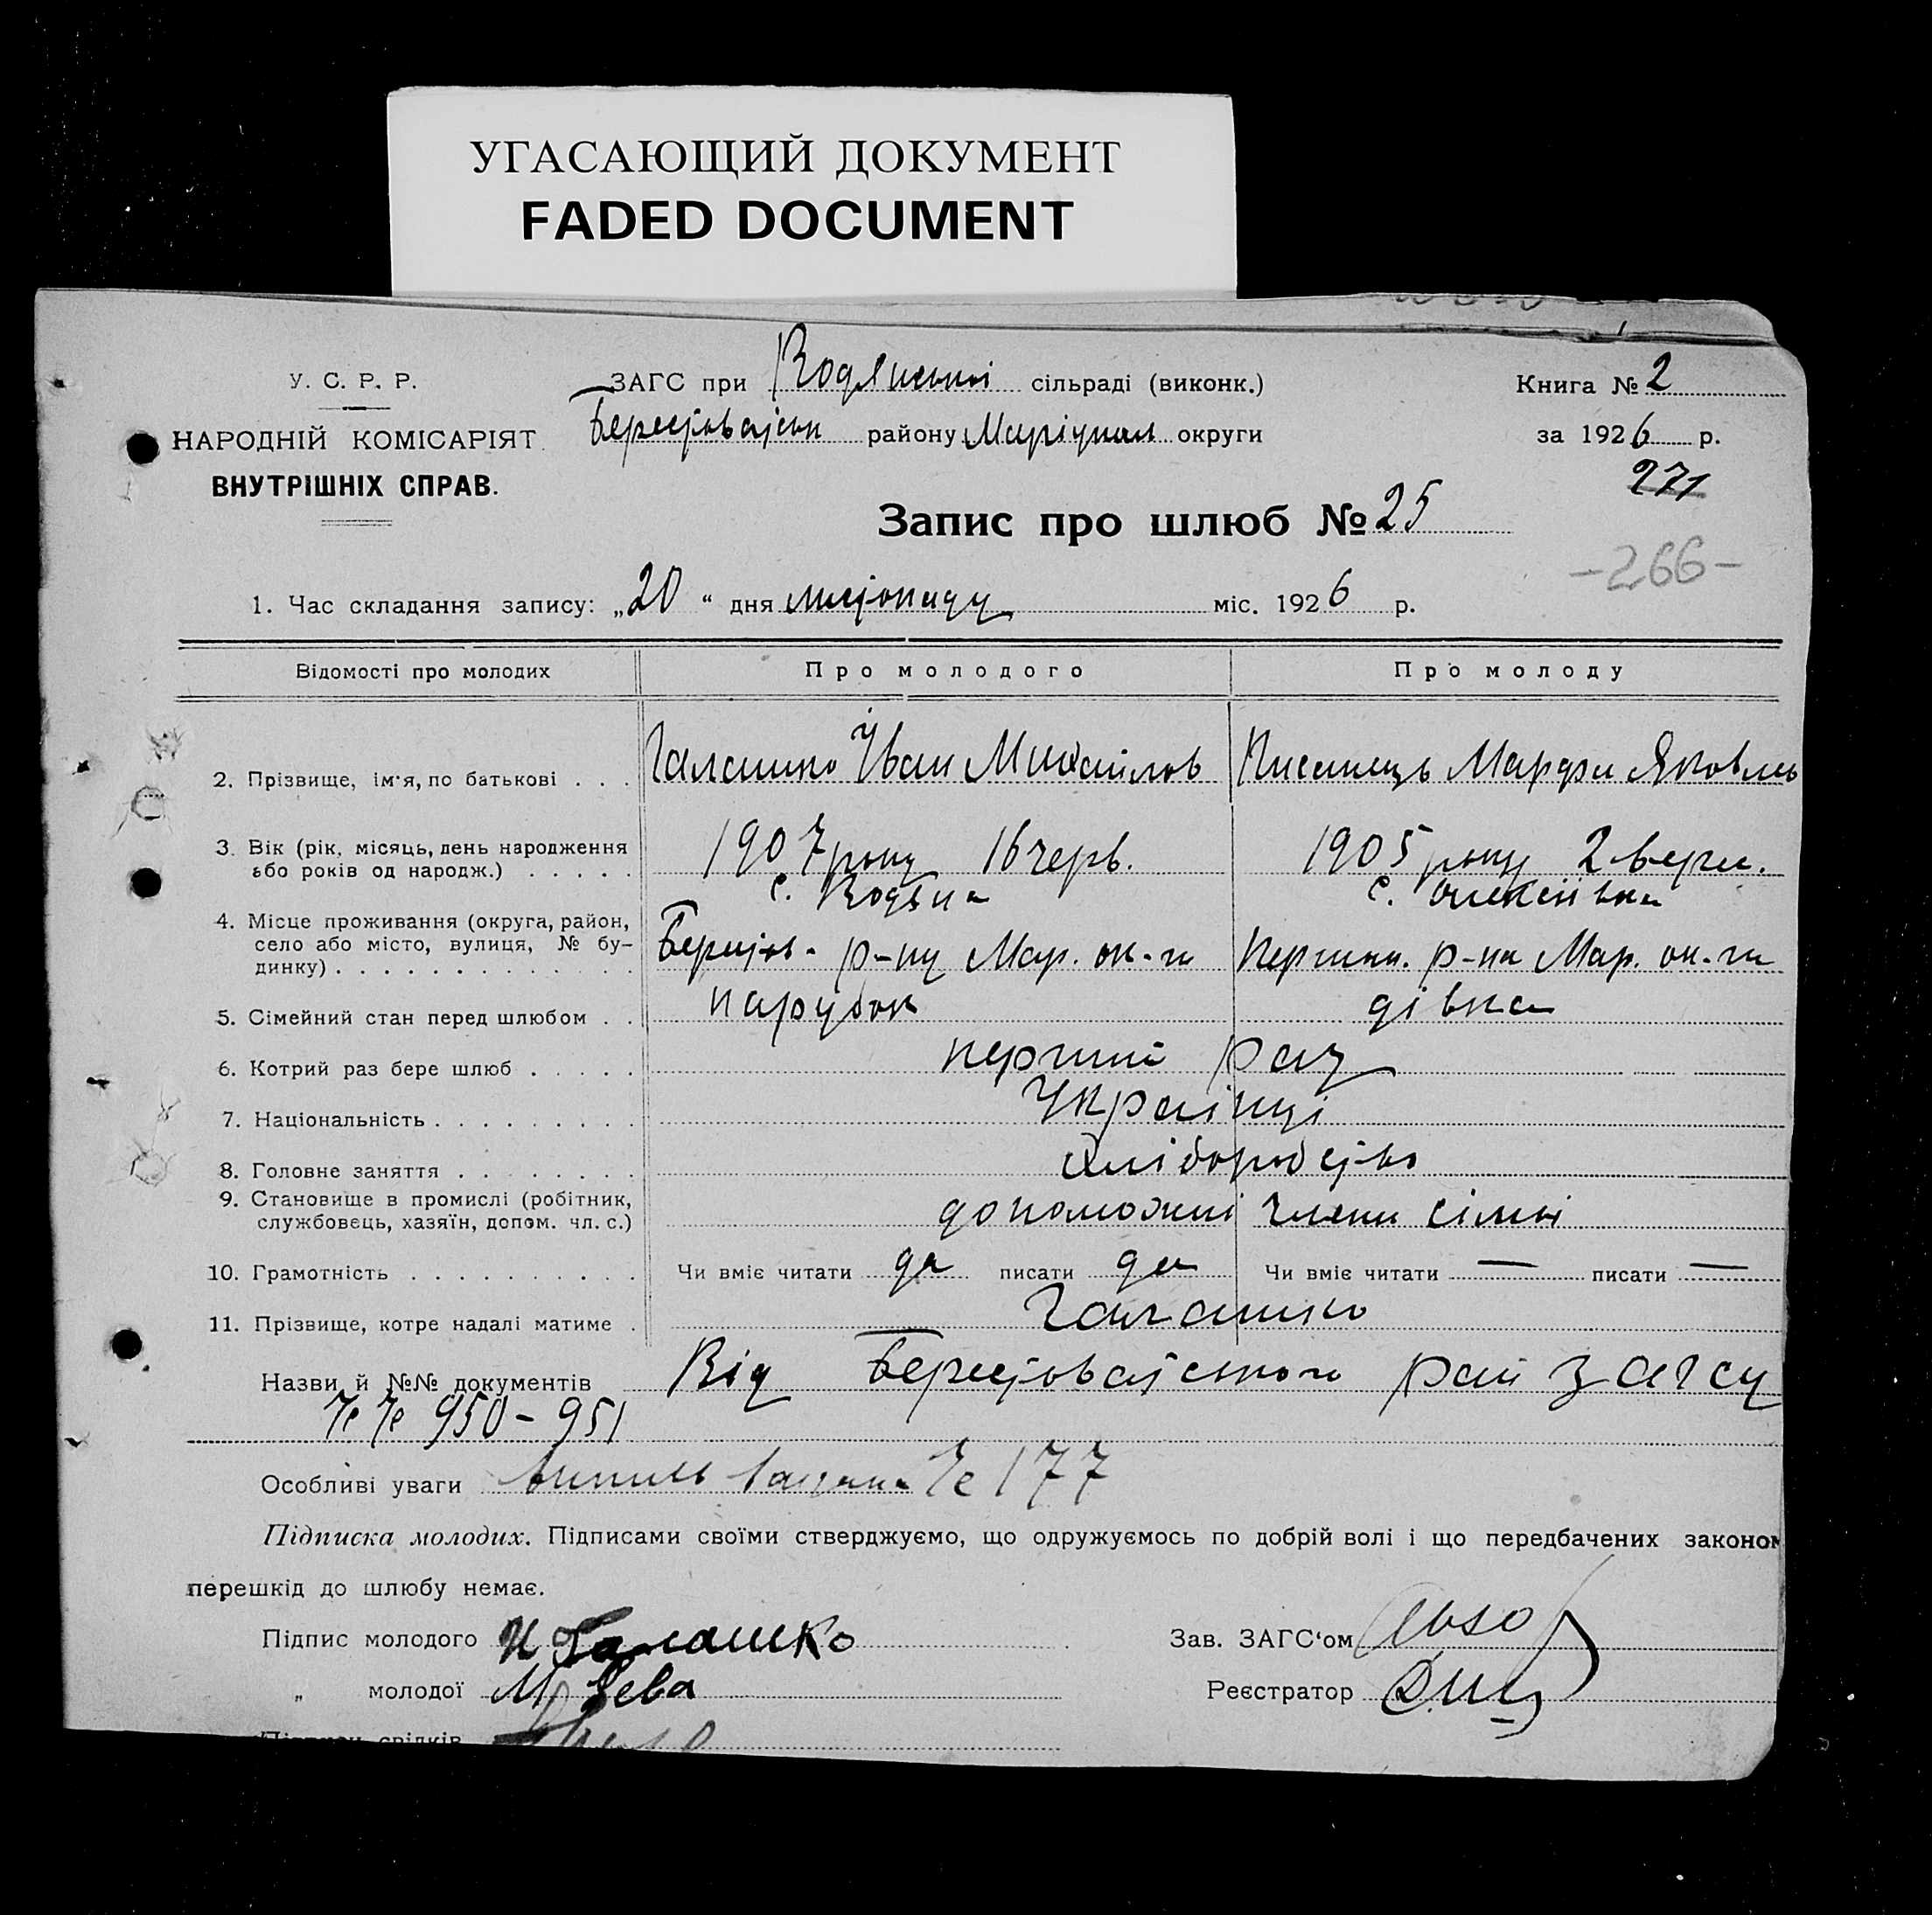 УГАСАЮЩИЙ ДОКУМЕНТ
FADED DOCUMENT
У. С. Р. Р.
НАРОДНІЙ КОМІСАРІЯТ
ВНУТРІШНІХ СПРАВ.
ЗАГС при Водянській сільраді (виконк.)
Берестоватськ району Маріупил округи
Книга № 2
за 1926 р.
271
Запис про шлюб № 25
-266-
1. Час складання запису: „20“ дня листопаду міс. 1926 р.
Відомості про молодих Про молодого Про молоду
2. Прізвище, ім'я, по батькові . . . Галашко Іван Михайлов Писанець Марфа Яковлев
3. Вік (рік, місяць, день народження або років од народж.) . . . . . 1907 року 16 черв. 1905 року 2 верес.
с. Водяна с. Олексіївка
4. Місце проживання (округа, район, село або місто, вулиця, № будинку) . . . Берестов. р-ну Мар. ок-ги Першин. р-на Мар. ок-ги
5. Сімейний стан перед шлюбом . . парубок дівка
6. Котрий раз бере шлюб . . . . . перший раз
7. Національність . . . . . . . . . Українці
8. Головне заняття . . . . . . . . хліборобство
9. Становище в промислі (робітник, службовець, хазяїн, допом. чл. с.) допоможні члени сімьї
10. Грамотність . . . . . . . . . . Чи вміє читати да писати да Чи вміє читати — писати —
11. Прізвище, котре надалі матиме . Галашко
Назви й №№ документів Від Берестоватського рай загсу
№№ 950-951
Особливі уваги випись № 177
Підписка молодих. Підписами своїми стверджуємо, що одружуємось по добрій волі і що передбачених законом
перешкід до шлюбу немає.
Підпис молодого И Галашко Зав. ЗАГС‘ом
„ молодої Реєстратор
Підписи свідків